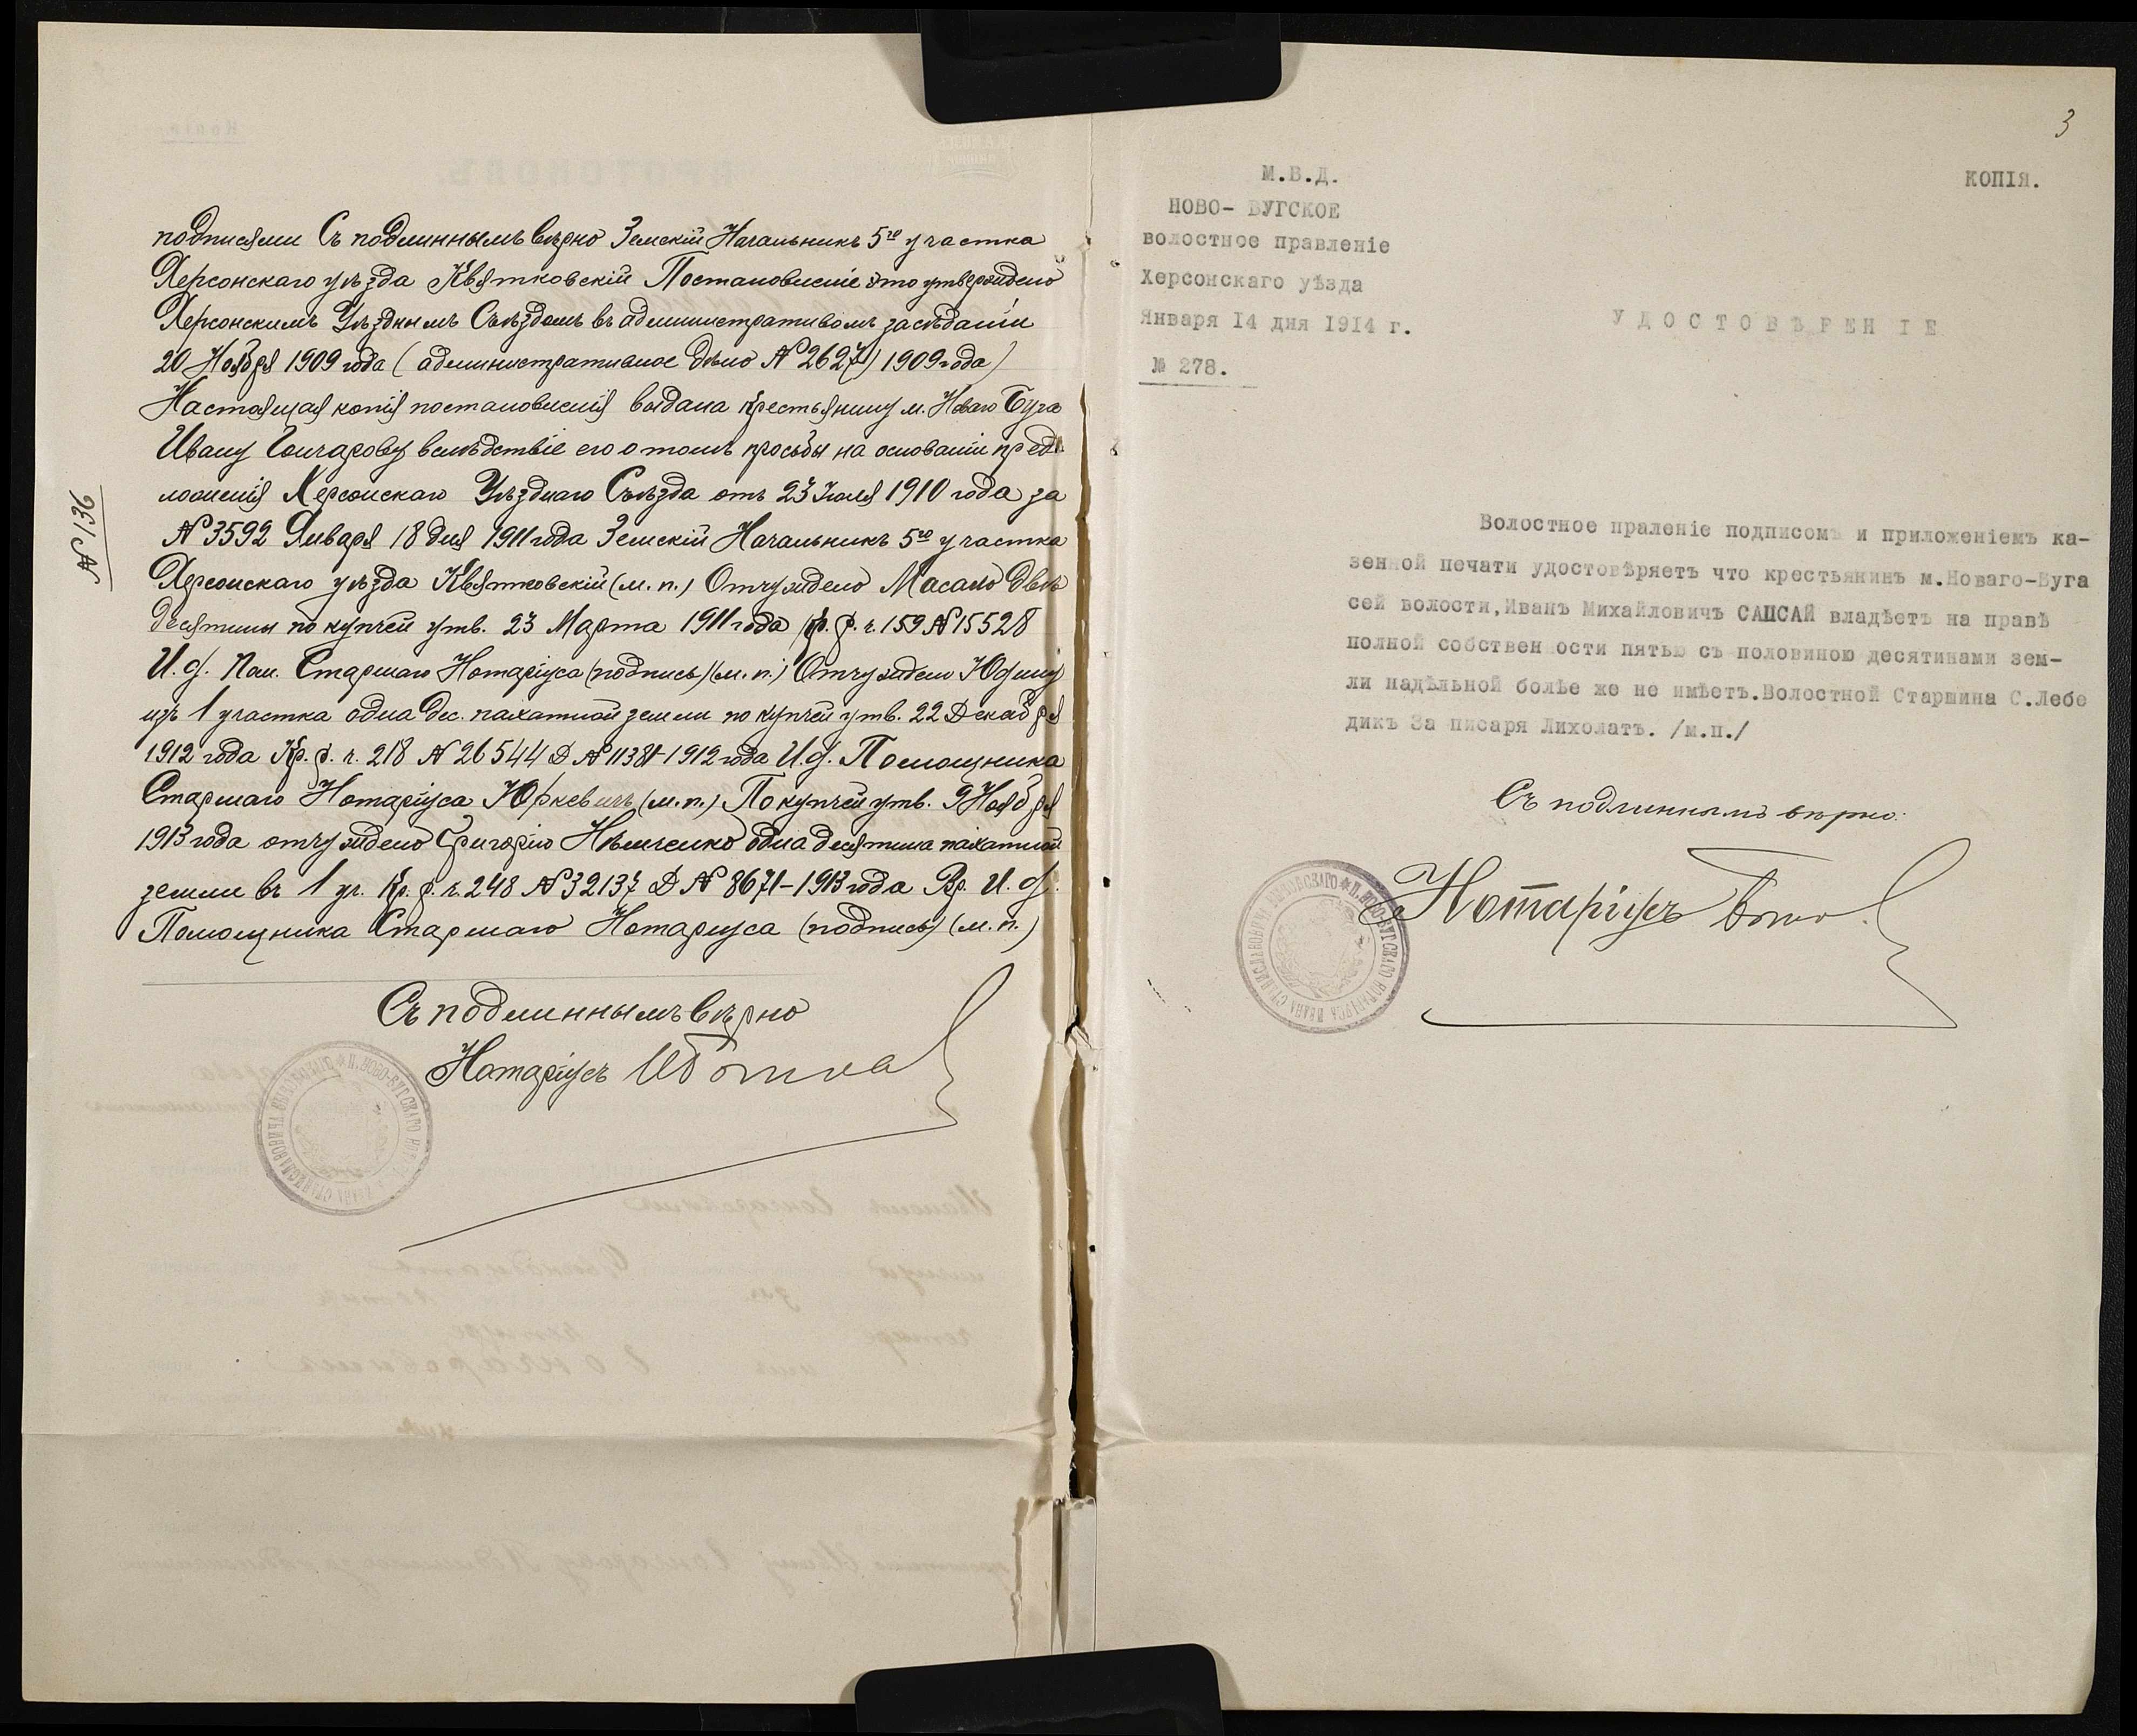 подписями Съ подлиннымъ вѣрно Земскій Начальникъ 5го участка
Херсонскаго уѣзда Квятковскій Постановленіе это утверждено
Херсонскимъ Уѣзднымъ Съѣздомъ въ административомъ засѣданіи
20 Ноября 1909 года (административное дѣло № 2627) 1909 года)
Настоящая копія постановленія выдана крестьянину м. Новаго Буга
Ивану Гончарову вслѣдствіе его о томъ просьбы на основаніи пред
ложенія Херсонскаго Уѣзднаго Съѣзда отъ 23 Іюля 1910 года за
№ 3592 Января 18 дня 1911 года Земскій Начальникъ 5го участка
Херсонскаго уѣзда Квятковскій (м. п.) Отчуждено Масало двѣ
десятины по купчей утв. 23 Марта 1911 года Кр. р. ч. 159 № 15528
И. д. Пом. Старшаго Нотаріуса (подпись) (м. п.) Отчуждено Юдину
изъ 1 участка одна дес. пахатной земли по купчей утв. 22 Декабря
1912 года Кр. р. ч. 218 № 26544 Д № 11381-1912 года И. д. Помощника
Старшаго Нотаріуса Юркевичъ (м. п.) По купчей утв. 9 Ноября
1913 года отчуждено Григорію Нѣмченко одна десятина пахатной
земли въ 1 уч. Кр. р. ч. 248 № 32137 Д № 8671-1913 года Вр. И. д.
Помощника Старшаго Нотаріуса (подпись) (м. п.)
№ 136
Съ подлиннымъ вѣрно
Нотаріусъ
3
М.В.Д.
НОВО- БУГСКОЕ
волостное правленіе
Херсонскаго уѣзда
Января 14 дня 1914 г.
№ 278.
КОПІЯ.
УДОСТОВѢРЕНІЕ
Волостное праленіе подписомъ и приложеніемъ ка-
зенной печати удостовѣряетъ что крестьянинъ м.Новаго-Буга
сей волости,Иванъ Михайловичъ САПСАЙ владѣетъ на правѣ
полной собствен ости пятью съ половиною десятинами зем-
ли надѣльной болѣе же не имѣетъ.Волостной Старшина С.Лебе
дикъ За писаря Лихолатъ. /м.п./
Съ подлиннымъ вѣрно:
Нотаріусъ